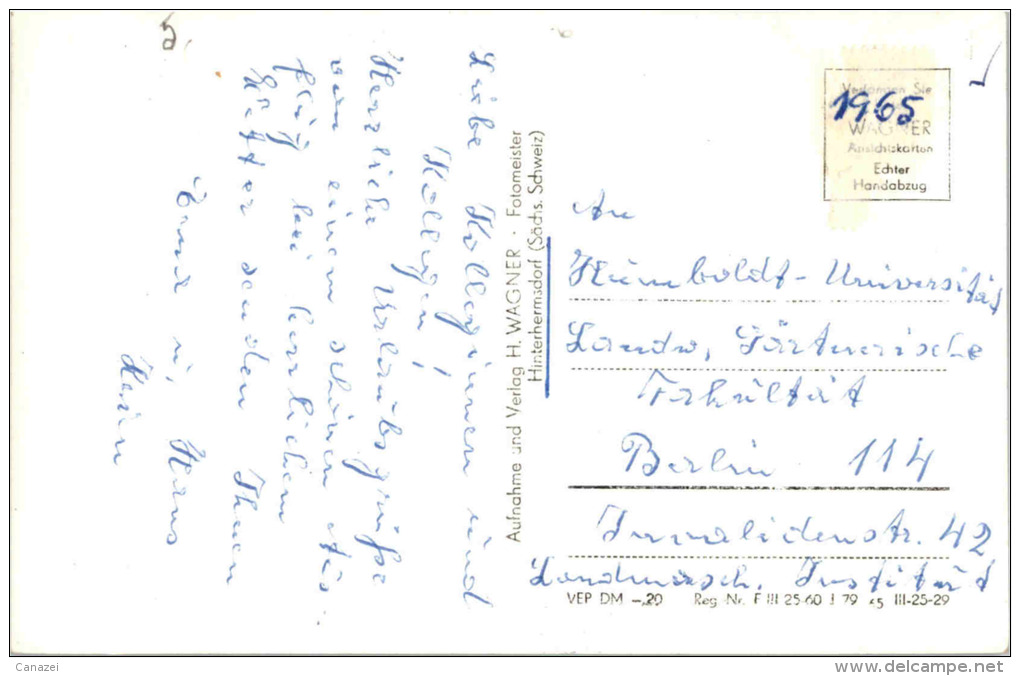 Liebe Kolleginnen und
Kollegen!
Herzliche Urlaubsgrüße
von einem schönen Aus
flug bei herrlichem
Wetter senden Ihnen
u. Hans
Aufnahme und Verlag H. WAGNER · Fotomeister
Hinterhermsdorf (Sächs. Schweiz)
Verlangen Sie
WAGNER
Ansichtskarten
Echter
Handabzug
1965
An
Humboldt-Universität
Landw. Gärtnerische
Fakultät
Berlin 114
Invalidenstr. 42
Landmasch. Institut
VEP DM -,20 Reg.-Nr. F III 25-60 J 79 45 III-25-29
Canazei
www.delcampe.net